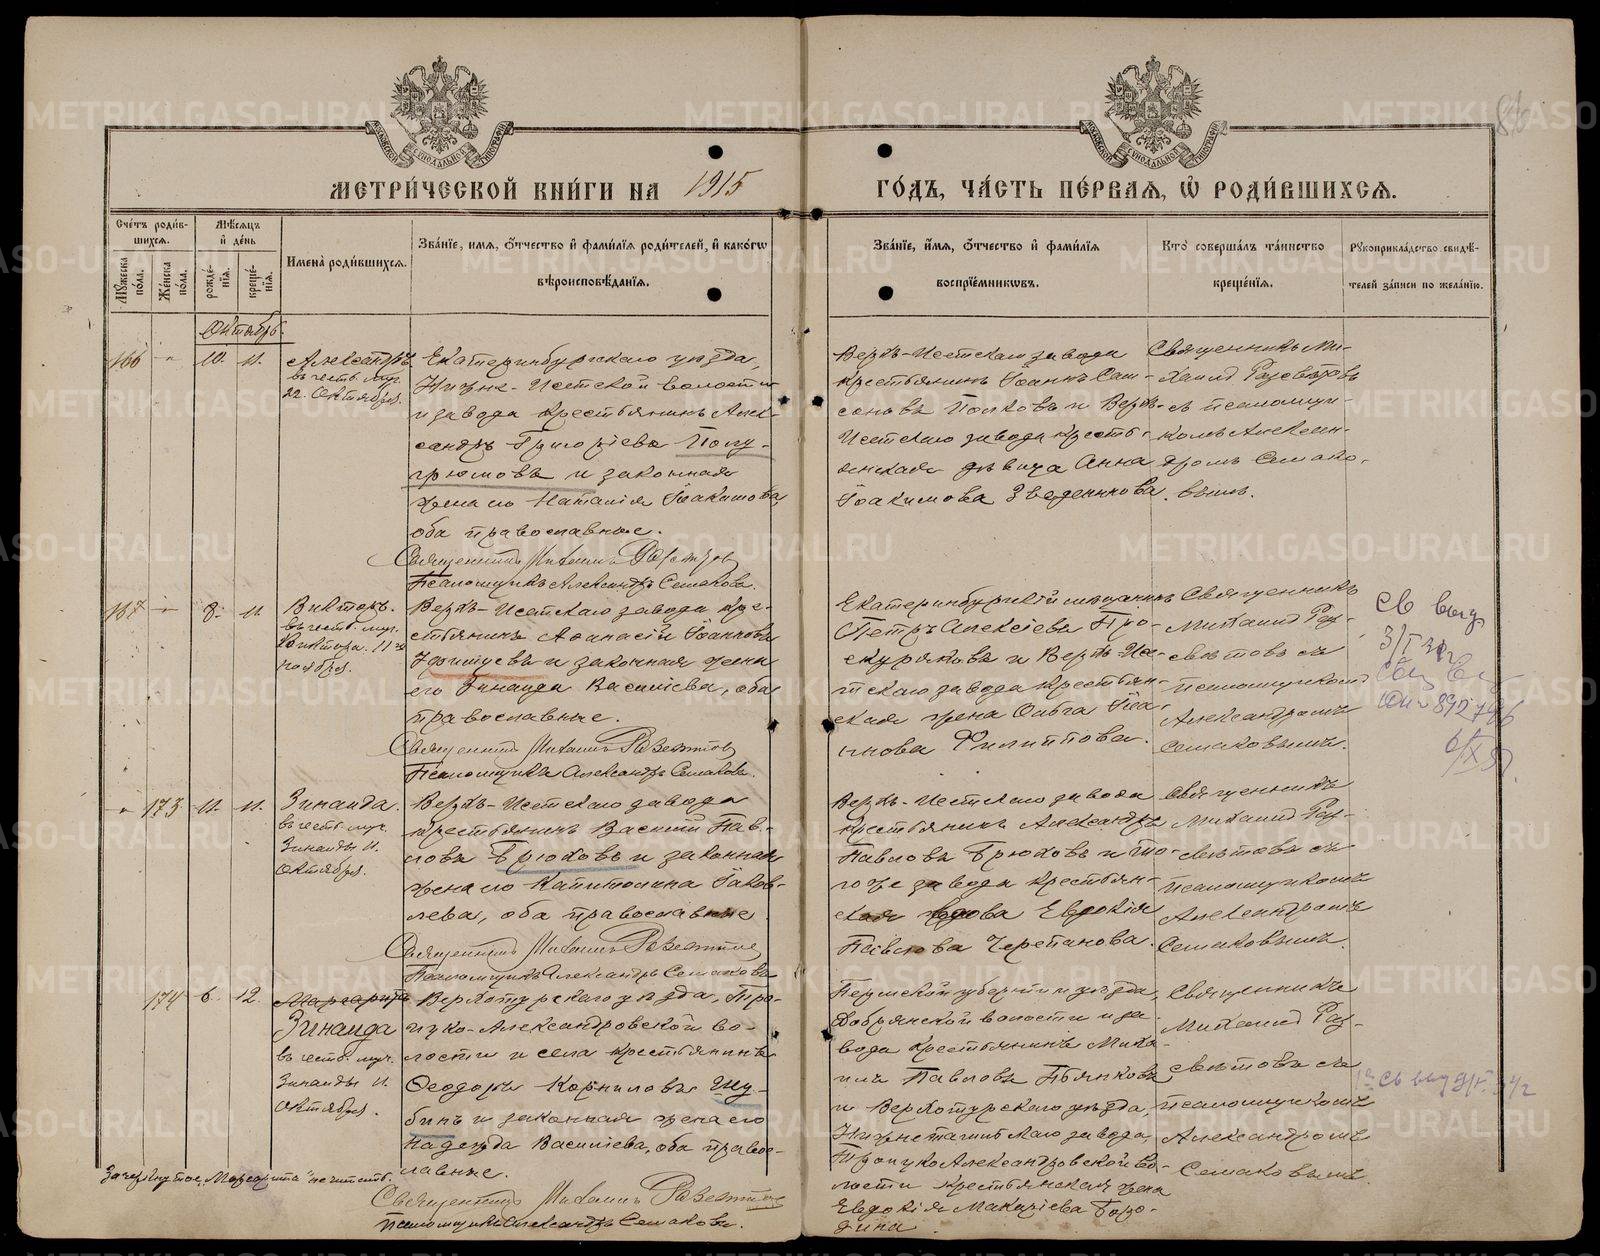 МЕТРИ́ЧЕСКОЙ КНИ́ГИ НА 1915
ГО́ДЪ, ЧА́СТЬ ПЕ́РВАЯ, Ѽ РОДИ́ВШИХСѦ.
86
Сче́тъ роди́в-
шихсѧ.
Мѣ́сѧцъ
и҆ де́нь
Мꙋ́жеска
по́ла.
Же́нска
по́ла.
рожде́-
нїѧ.
креще́-
нїѧ.
Имена̀ роди́вшихсѧ.
Зва́нїе, имѧ, ѻ҆́тчество и҆ фами́лїѧ роди́телей, и҆ како́гѡ
вѣроисповѣ́данїѧ.
Зва́нїе, и҆́мѧ, ѻ҆́тчество и҆ фами́лїѧ
воспрїе́мникѡвъ.
Кто̀ соверша́лъ та́инство
креще́нїѧ.
Рꙋкоприкла́дство свидѣ́-
телей за́писи по жела́нїю.
Октябрь.
166 - 10. 11.
Александръ
въ честь муч.
22. Октября.
Екатеринбургскаго уѣзда,
Нижне-Исетской волости
и завода крестьянинъ Алек-
сандръ Григорьевъ Полу-
грюмовъ и законная
жена его Наталія Іоакимова,
оба православные.
Священникъ Михаилъ Разсвѣтовъ
Псаломщикъ Александръ Семаковъ.
Верхъ-Исетскаго завода
крестьянинъ Іоаннъ Сам-
соновъ Поповъ и Верхъ-
Исетскаго завода крестья-
янская дѣвица Анна
Іоакимова Зведенинова.
Священникъ Ми-
хаилъ Разсвѣтовъ
съ псаломщи-
комъ Алексан-
дромъ Семако-
вымъ.
167 - 8. 11.
Викторъ.
въ честь муч.
Виктора. 11
ноября.
Верхъ-Исетскаго завода кре-
стьянинъ Аѳанасій Іоанновъ
и законная жена
его Зинаида Василіева, оба
православные.
Священникъ Михаилъ Разсвѣтовъ
Псаломщикъ Александръ Семаковъ.
Екатеринбургскій мѣщанинъ
Петръ Алексіевъ Про-
скуряковъ и Верхъ-Ис-
етскаго завода крестьян-
ская жена Ольга
Филиппова.
Священникъ
Михаилъ Раз-
свѣтовъ съ
псаломщикомъ
Александромъ
Семаковымъ.
- 173 11. 11.
Зинаида.
въ честь муч.
Зинаиды 11.
Октября.
Верхъ-Исетскаго завода
крестьянинъ Василій Пав-
ловъ Брюховъ и законная
жена его Капитолина Іаков-
лева, оба православные
Священникъ Михаилъ Разсвѣтовъ
Псаломщикъ Александръ Семаковъ
Верхъ-Исетскаго завода
крестьянинъ Александръ
Павловъ Брюховъ и то-
го же завода крестьян-
ская вдова Евдокія
Павлова Черепанова.
Священникъ
Михаилъ Раз-
свѣтовъ съ
псаломщикомъ
Александромъ
Семаковымъ.
174 6. 12.
Маргарита
Зинаида
въ честь муч.
Зинаиды 11.
Октября.
Верхотурскаго уѣзда, Тро-
ицко-Александровской во-
лости и села крестьянинъ
Ѳеодоръ Корниловъ Шу-
бинъ и законная жена его
Надежда Василіева, оба право-
славные.
Священникъ Михаилъ Разсвѣтовъ
Псаломщикъ Александръ Семаковъ.
Зачеркнутое "Маргарита" не читать.
Пермской губерніи и уѣзда,
Добрянской волости и за-
вода крестьянинъ Миха-
илъ Павловъ Пьянковъ
и Верхотурскаго уѣзда,
Нижнетагильскаго завода,
Троицко Александровской во-
лости крестьянская жена
Евдокія Боро-
дина
Священникъ
Михаилъ Раз-
свѣтовъ съ
псаломщикомъ
Александромъ
Семаковымъ.